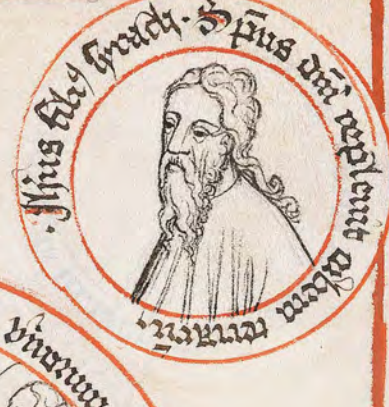 Jhus fili⁹ syrach. Sp̄us dn̄i repleuit orbem
terraru̅